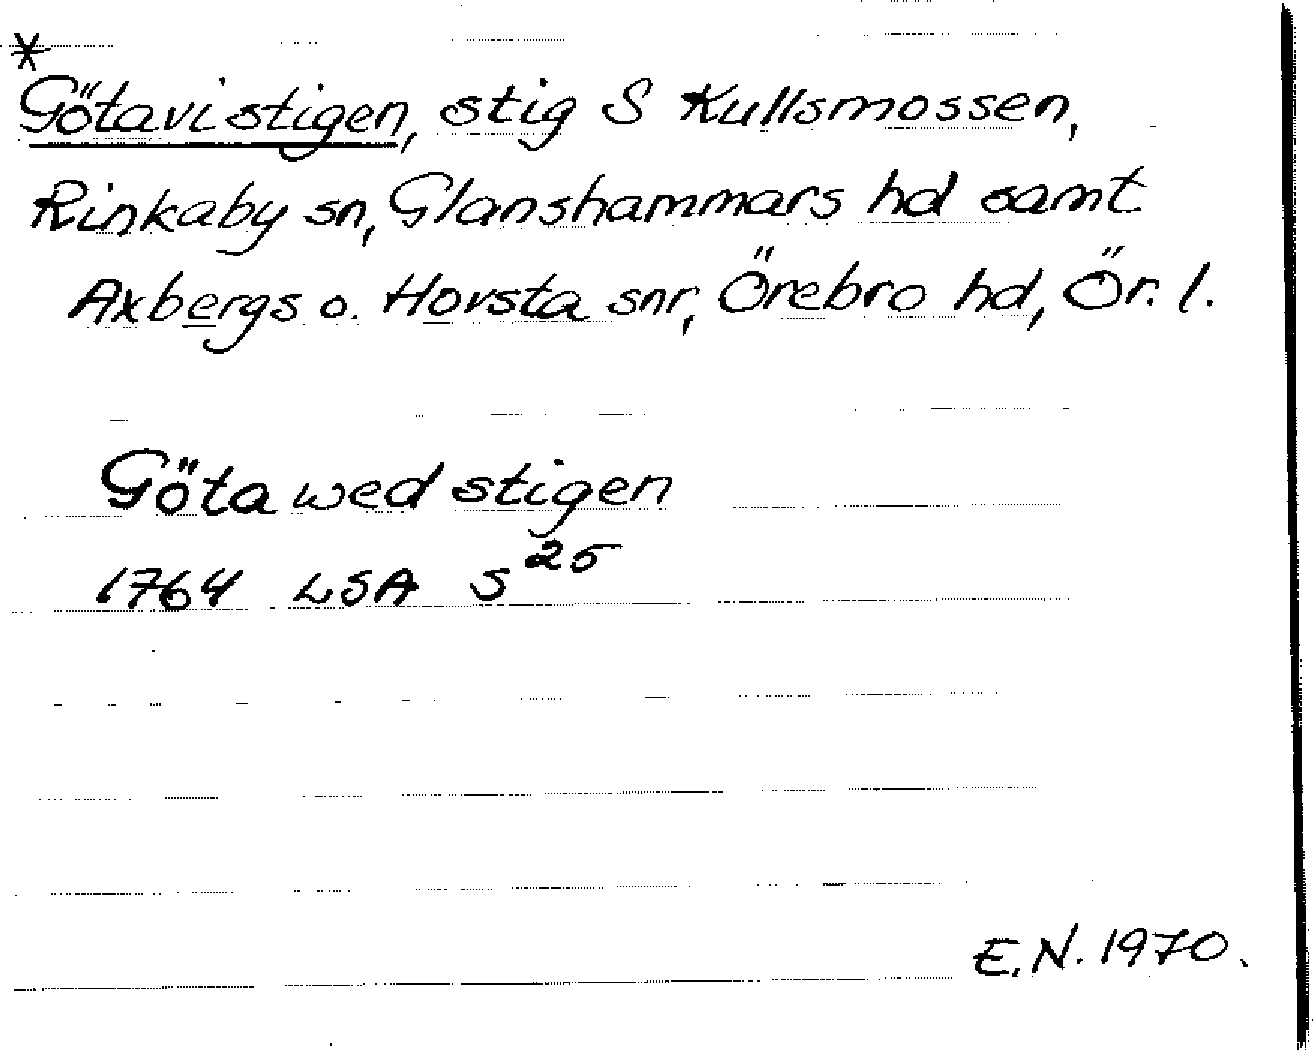 *
Götavistigen, stig S Kullsmossen,
Rinkaby sn, Glanshammars hd samt
Axbergs o. Hovsta snr, Örebro hd, Ör. l.
Göta wed stigen
1764 LSA S 25
E.N. 1970.